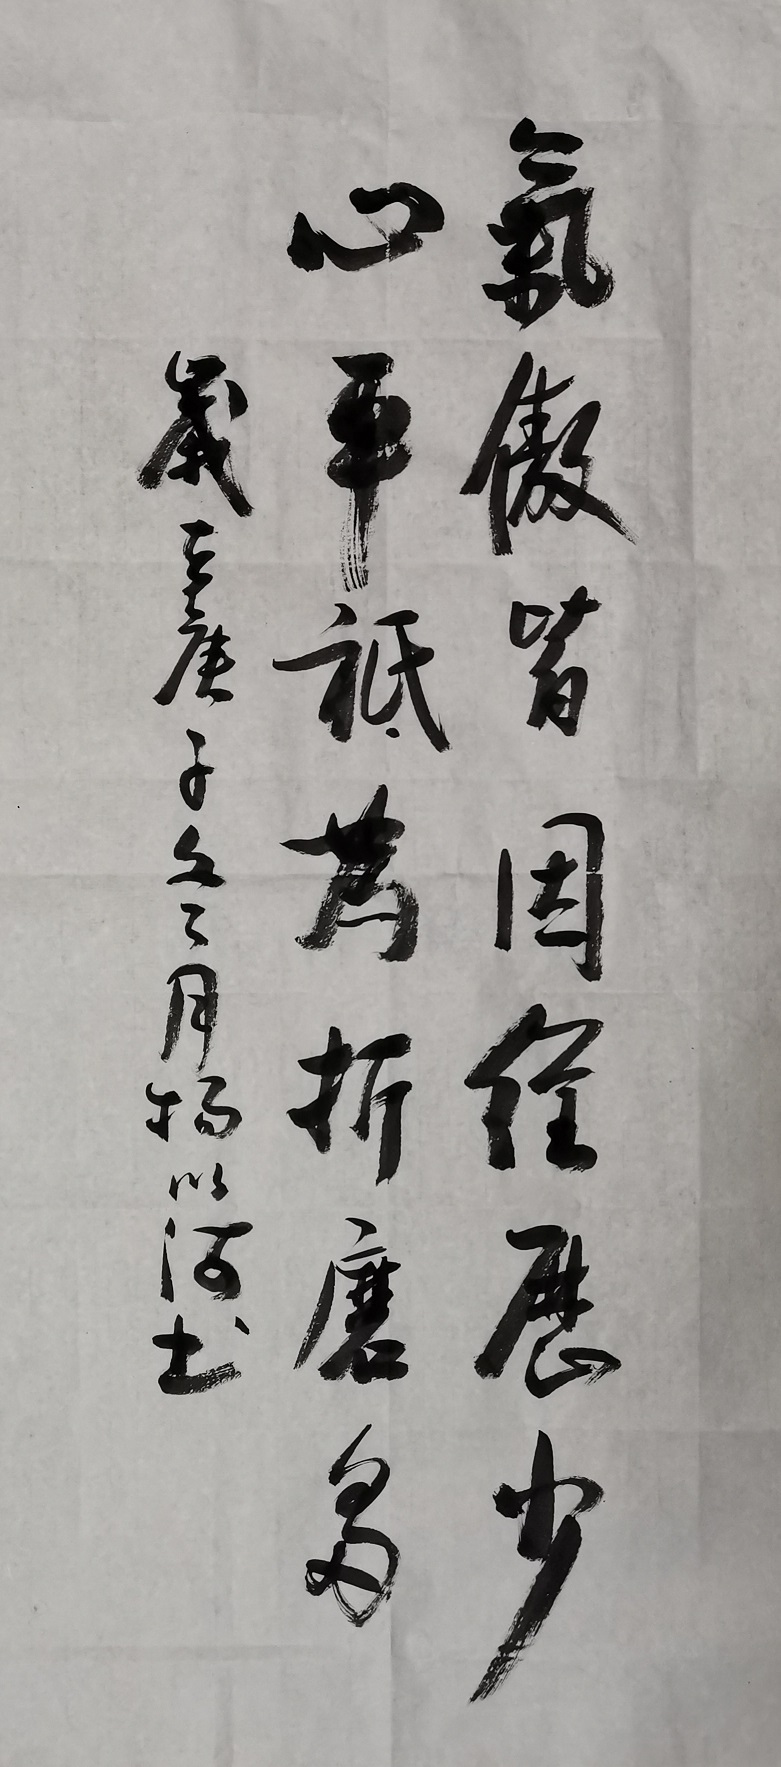 氣傲皆因經歷少
心平祗為折磨多
歲在庚子冬二月楊以河書